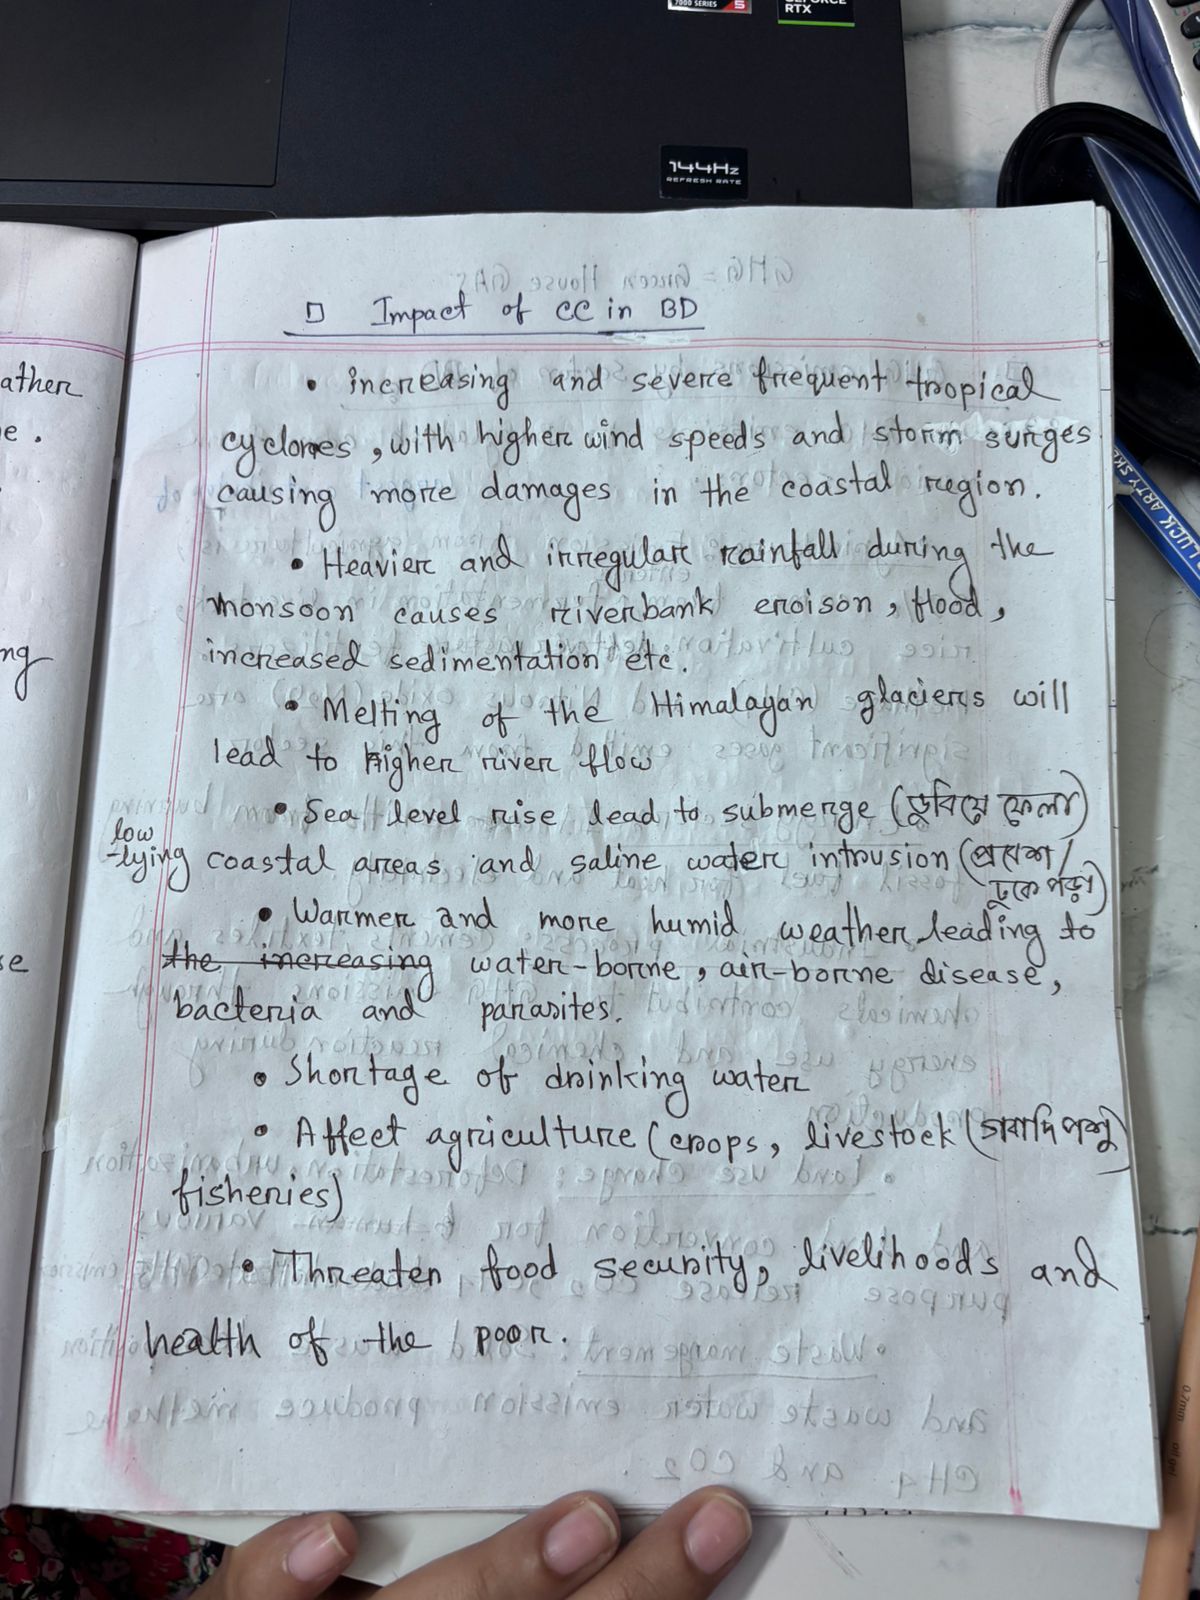 7000 SERIES 5
RTX
144Hz
REFRESH RATE
□ Impact of CC in BD
• increasing and severe frequent tropical
cyclones, with higher wind speeds and storm surges
causing more damages in the coastal region.
• Heavier and irregular rainfall during the
monsoon causes riverbank eroison, flood,
increased sedimentation etc.
• Melting of the Himalayan glaciers will
lead to higher river flow
• Sea level rise lead to submerge (ডুবিয়ে ফেলা)
low
-lying coastal areas and saline water intrusion (প্রবেশ/
ঢুকে পড়া)
• Warmer and more humid weather leading to
the increasing water-borne, air-borne disease,
bacteria and parasites.
• Shortage of drinking water
• Affect agriculture (crops, livestock (গবাদি পশু)
fisheries)
• Threaten food security, livelihoods and
health of the poor.
ather
e.
ng
se
LUCK ARTY
0.7mm oil gel